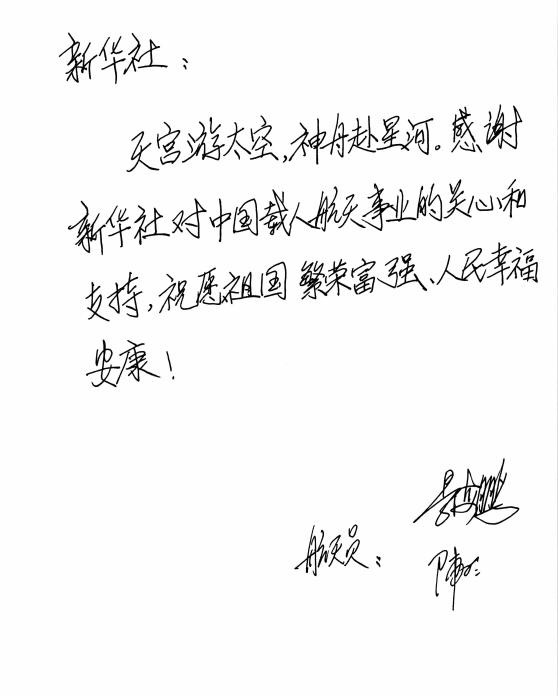 新华社：
天宫游太空，神舟赴星河。感谢
新华社对中国载人航天事业的关心和
支持，祝愿祖国繁荣富强、人民幸福
安康！
景海鹏
航天员：
陈冬